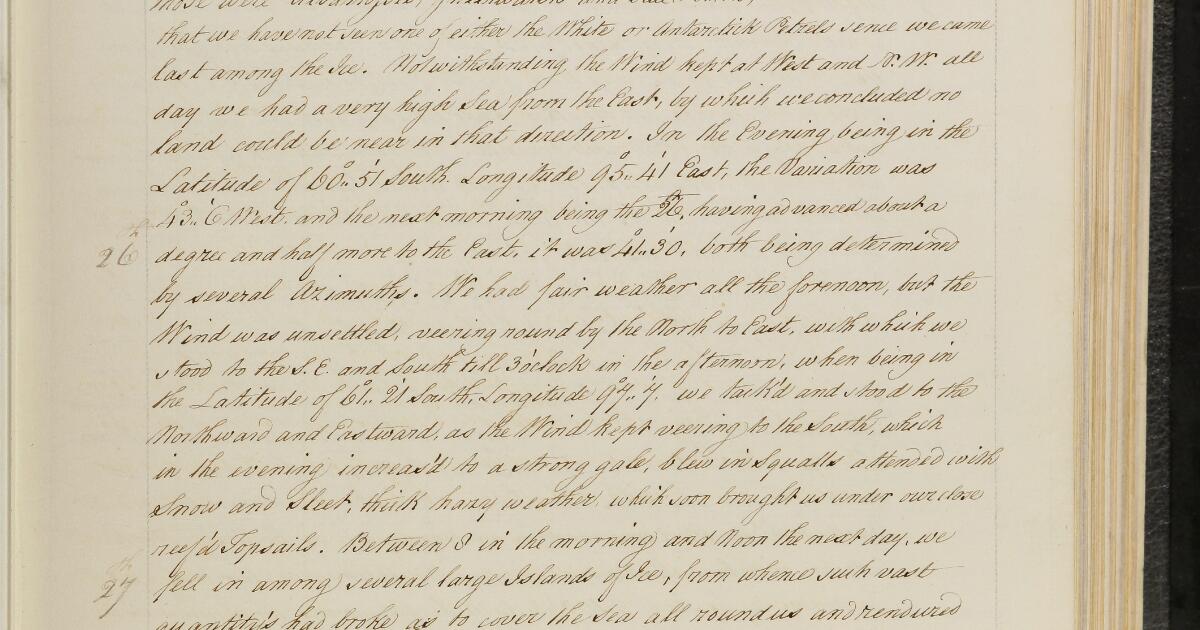 that we have not seen one of either the White or Antarctick Petrels sence we came
last among the Ice. Notwithstanding the Wind kept at West and N.W. all
day we had a very high Sea from the East, by which we concluded no
land could be near in that direction. In the Evening being in the
Latitude of 60°.. 51' South. Longitude 95°.. 41' East, the Variation was
43°.. 6' West. and the next morning being the 26th, having advanced about a
26th
degree and half more to the East, it was 41°.. 30', both being determined
by several Azimuths. We had fair weather all the forenoon, but the
Wind was unsettled, veering round by the North to East, with which we
stood to the S.E. and South till 3 o'clock in the afternoon, when being in
the Latitude of 61°.. 21' South, Longitude 97°.. 7', we tack'd and stood to the
Northward and Eastward, as the Wind kept veering to the South, which
in the evening increas'd to a strong gale, blew in Squalls attended with
Snow and Sleet, thick hazy weather, which soon brought us under our close
reef'd Topsails. Between 8 in the morning and Noon the next day, we
27th
fell in among several large Islands of Ice, from whence such vast
quantity's had broke as to cover the Sea all round us and rendured